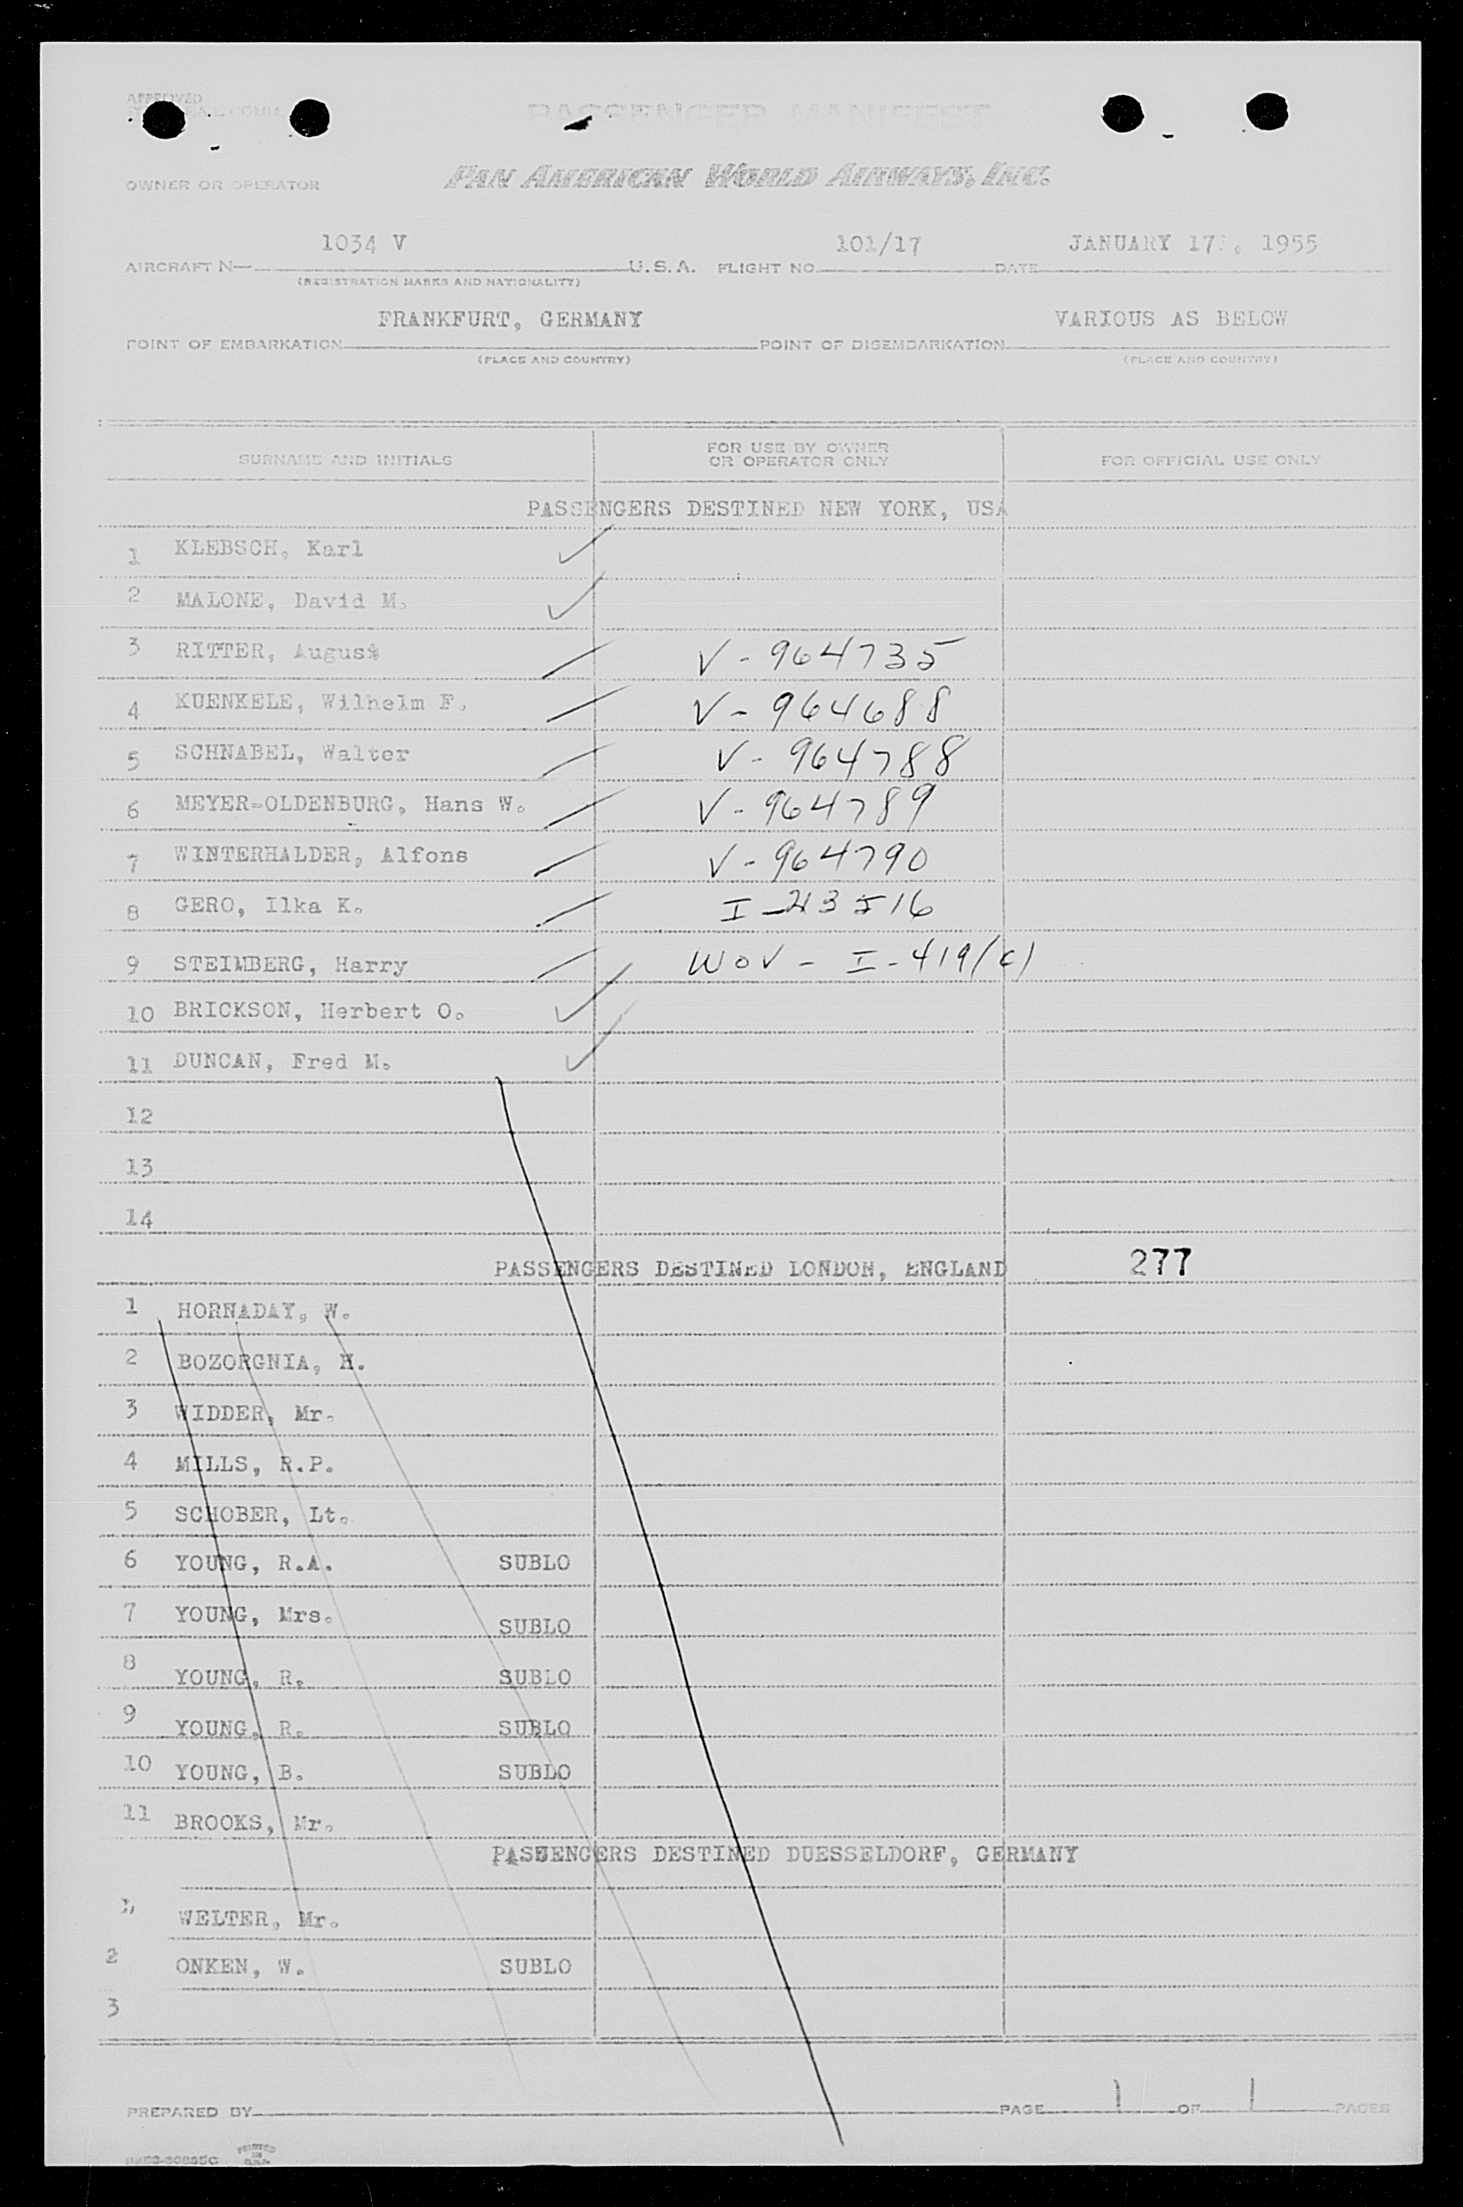 APPROVED
PASSENGER MANIFEST
OWNER OR OPERATOR PAN AMERICAN WORLD AIRWAYS, INC.
1034 V 101/17 JANUARY 17, 1955
AIRCRAFT N— U.S.A. FLIGHT NO. DATE
(REGISTRATION MARKS AND NATIONALITY)
FRANKFURT, GERMANY VARIOUS AS BELOW
POINT OF EMBARKATION POINT OF DISEMBARKATION
(PLACE AND COUNTRY) (PLACE AND COUNTRY)
SURNAME AND INITIALS FOR USE BY OWNER OR OPERATOR ONLY FOR OFFICIAL USE ONLY
PASSENGERS DESTINED NEW YORK, USA
1 KLEBSCH, Karl
2 MALONE, David M.
3 RITTER, August V-964735
4 KUENKELE, Wilhelm F. V-964688
5 SCHNABEL, Walter V-964788
6 MEYER-OLDENBURG, Hans W. V-964789
7 WINTERHALDER, Alfons V-964790
8 GERO, Ilka K. I-43516
9 STEIMBERG, Harry WOV - I-419(c)
10 BRICKSON, Herbert O.
11 DUNCAN, Fred M.
12
13
14
PASSENGERS DESTINED LONDON, ENGLAND 277
1 HORNADAY, W.
2 BOZORGNIA, H.
3 WIDDER, Mr.
4 MILLS, R.P.
5 SCHOBER, Lt.
6 YOUNG, R.A. SUBLO
7 YOUNG, Mrs. SUBLO
8 YOUNG, R. SUBLO
9 YOUNG, R. SUBLO
10 YOUNG, B. SUBLO
11 BROOKS, Mr.
PASSENGERS DESTINED DUESSELDORF, GERMANY
1 WELTER, Mr.
2 ONKEN, W. SUBLO
3
PREPARED BY PAGE 1 OF 1 PAGES
PRINTED IN U.S.A.